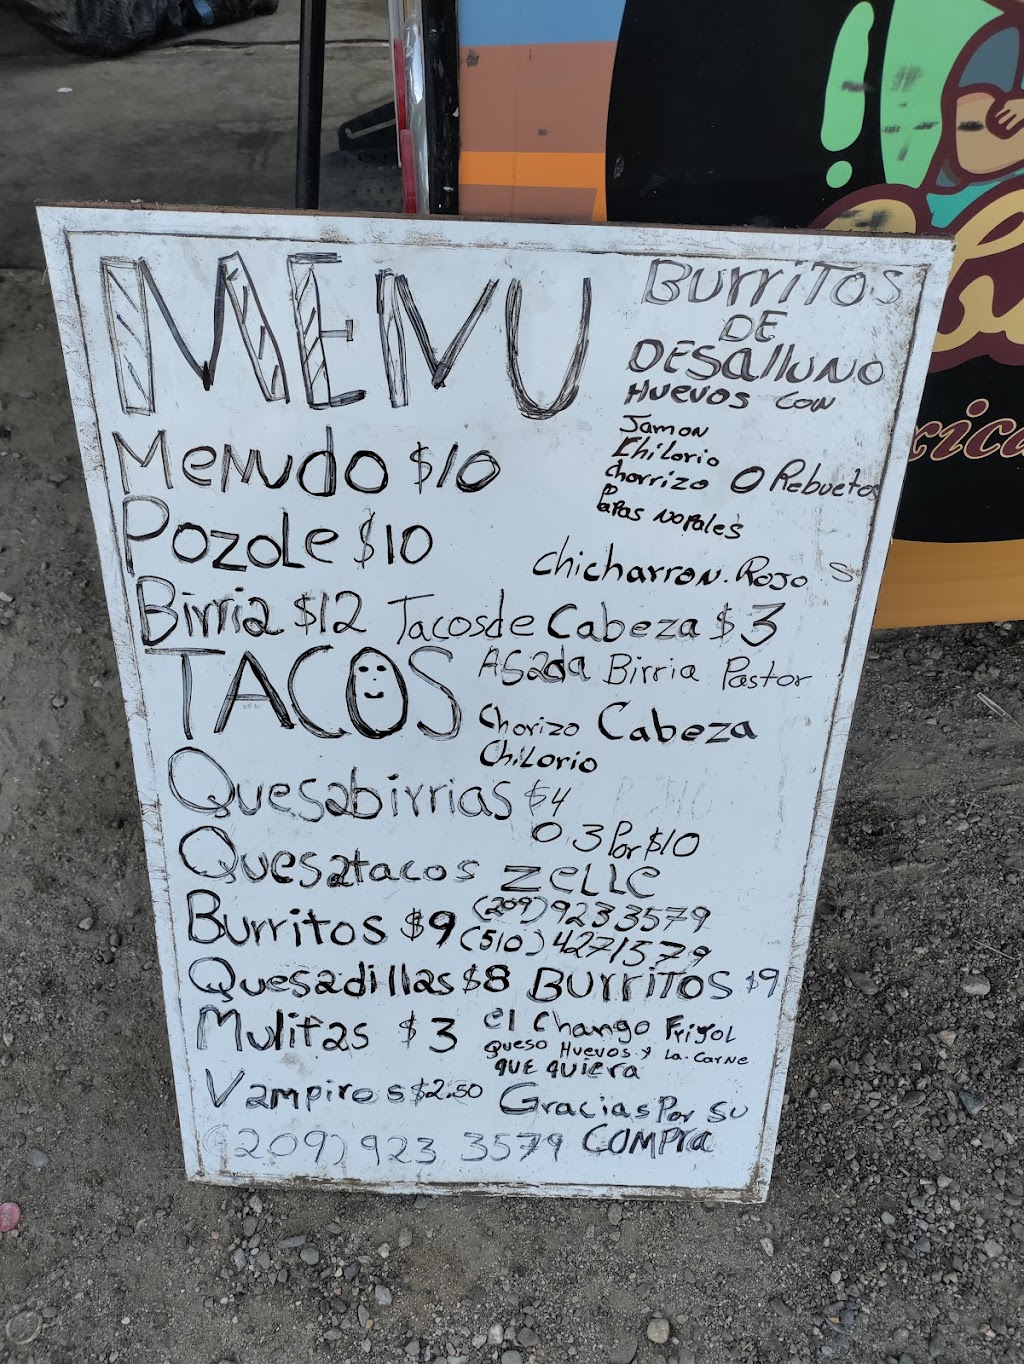 MENU
BURRITOS
DE
DESALLUNO
HUEVOS CON
Jamon
CHILORIO
chorrizo O Rebuetos
PaPas NOPALES
Menudo $10
Pozole $10
chicharron. Rojo S
Birria $12 Tacos de Cabeza $3
TACOS Asada Birria Pastor
Chorizo Cabeza
CHILORIO
Quesabirrias $4
O 3 Por $10
Quesatacos ZELLE
Burritos $9 (209) 923 3579
(510) 4271579
Quesadillas $8 BURRITOS $9
Mulitas $3 el Chango Frijol
Queso Huevos y La Carne
QUE QUIERA
Vampiros $2.50 Gracias Por SU
(209) 923 3579 COMPRA